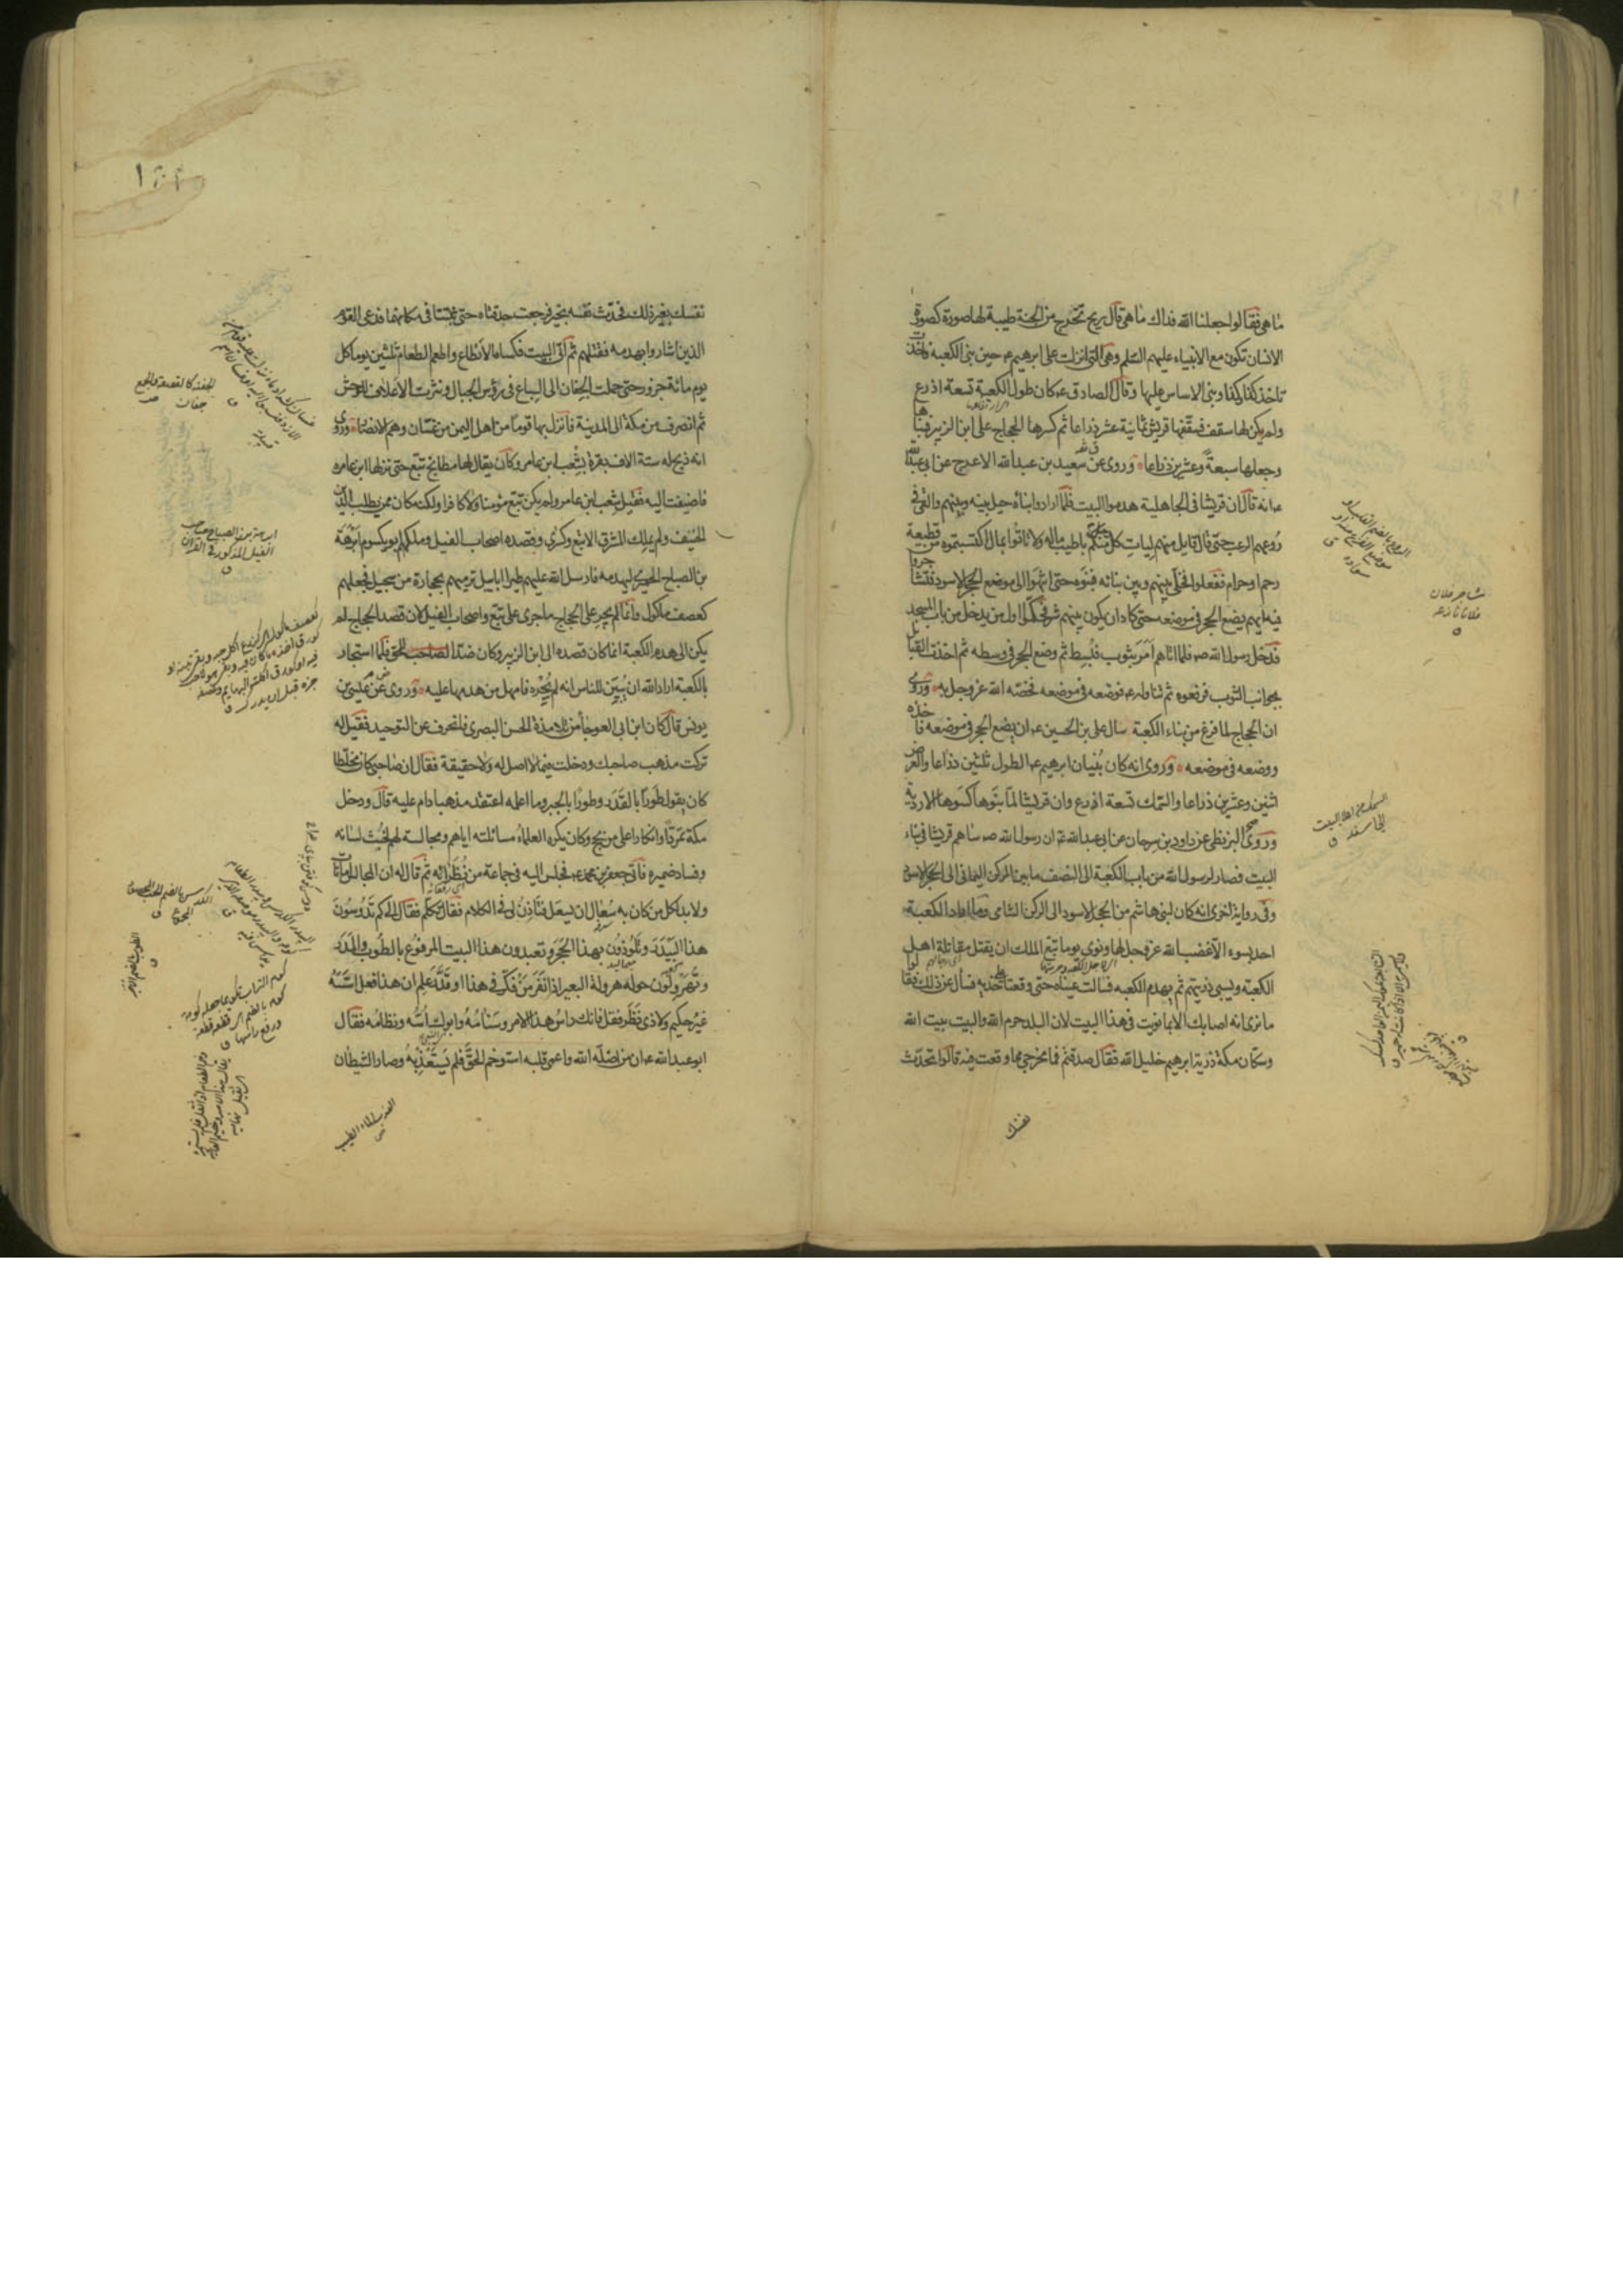 ما هي فقالوا جعلنا الله فداك ما هي قال ريح تخرج من الجنة طيبة لها صورة كصورة
الانسان تكون مع الانبياء عليهم السلم وهي التي انزلت على ابرهيم ع حين بنى الكعبة فاخذت
تاخذ كذا وكذا وبنى الاساس عليها وقال الصادق ع كان طول الكعبة تسعة اذرع
ولم يكن لها سقف فسقفها قريش ثمانية عشر ذراعا ثم كسرها الحجاج على ابن الزبير فبناها
وجعلها سبعة وعشرين ذراعا وروى عن سعيد بن عبدالله الاعرج عن ابي عبدالله
ع انه قال ان قريشا في الجاهلية هدموا البيت فلما ارادوا بناه حيل بينه وبينهم والقي في
روعهم الرعب حتى قال قايل منهم ليات كل رجل منكم باطيب ماله ولا تاتوا بمال اكتسبتموه من قطيعة
رحم او حرام ففعلوا فخلى بينهم وبين بنائه فبنوه حتى انتهوا الى موضع الحجر الاسود فتشاجروا
فيه ايهم يضع الحجر في موضعه حتى كاد ان يكون بينهم شر فحكموا اول من يدخل من باب المسجد
فدخل رسول الله ص فلما اتاهم امر بثوب فبسط ثم وضع الحجر في وسطه ثم اخذت القبائل
بجوانب الثوب فرفعوه ثم تناوله ع فوضعه في موضعه فخصه الله عز وجل به وروى
ان الحجاج لما فرغ من بناء الكعبة سال علي بن الحسين ع ان يضع الحجر في موضعه فاخذه
ووضعه في موضعه وروى انه كان بنيان ابرهيم ع الطول ثلثين ذراعا والعرض
اثنين وعشرين ذراعا والسمك تسعة اذرع وان قريشا لما بنوها كسوها الاردية
وروى البزنطي عن داود بن سرحان عن ابي عبدالله ع ان رسول الله ص ساهم قريشا في بناء
البيت فصار لرسول الله من باب الكعبة الى النصف ما بين الركن اليماني الى الحجر الاسود
وفي رواية اخرى انه كان لبني هاشم من الحجر الاسود الى الركن الشامي وما اراد الكعبة
احد بسوء الا غضب الله عز وجل لها ونوى يوما تبع الملك ان يقتل مقاتلة اهل
الكعبة ويسبي ذريتهم ثم يهدم الكعبة فسالت عيناه حتى وقعتا على خديه فسأل عن ذلك فقالوا
ما نرى انه اصابك الا بما نويت في هذا البيت لان البلد حرم الله والبيت بيت الله
وسكان مكة ذرية ابرهيم خليل الله فقال صدقتم فما مخرجي مما وقعت فيه قالوا تحدث
نفسك
شاجر فلان
فلانا نازعه
نفسك بغير ذلك فحدث نفسه بخير فرجعت حدقتاه حتى ثبتتا في مكانهما فدعى القوم
الذين اشاروا بهدمه فقتلهم ثم اتى البيت فكساها الانطاع واطعم الطعام ثلثين يوما كل
يوم مائة جزور حتى حملت الجفان الى السباع في رؤس الجبال ونثرت الاعلاف للوحش
ثم انصرف من مكة الى المدينة فانزل بها قوما من اهل اليمن من غسان وهم الانصار وروى
انه ذبح له ستة الاف بقرة بشعب ابن عامر وكان يقال لها مطابخ تبع حتى نزلها ابن عامر
فاضيفت اليه فقيل شعب ابن عامر ولم يكن تبع مؤمنا ولا كافرا ولكنه كان ممن يطلب الدين
الحنيف ولم يملك المشرق الا تبع وكسرى وقصده اصحاب الفيل وملكهم ابو يكسوم ابرهة
بن الصباح الحميري ليهدمه فارسل الله عليهم طيرا ابابيل ترميهم بحجارة من سجيل فجعلهم
كعصف ماكول وانما لم يجر على الحجاج ما جرى على تبع واصحاب الفيل لان قصد الحجاج لم
يكن الى هدم الكعبة انما كان قصده الى ابن الزبير وكان ضدا لصاحب الحق فلما استجار
بالكعبة اراد الله ان يبين للناس انه لم يجره فامهل من هدمها عليه وروى عن عيسى بن
يونس قال كان ابن ابي العوجا من تلامذة الحسن البصري فانحرف عن التوحيد فقيل له
تركت مذهب صاحبك ودخلت فيما لا اصل له ولا حقيقة فقال ان صاحبي كان مخلطا
كان يقول طورا بالقدر وطورا بالجبر وما اعلمه اعتقد مذهبا دام عليه قال ودخل
مكة تمردا وانكارا على من يحج وكان يكره العلماء مسائلته اياهم ومجالسته لهم لخبث لسانه
وفساد ضميره فاتى جعفر بن محمد ع فجلس اليه في جماعة من نظرائه ثم قال له ان المجالس امانات
ولا بد لكل من كان به سعال ان يسعل فتاذن لي في الكلام فقال تكلم فقال الى كم تدوسون
هذا البيدر وتلوذون بهذا الحجر وتعبدون هذا البيت المرفوع بالطوب والمدر
وتهرولون حوله هرولة البعير اذا نفر من فكر في هذا او قدر علم ان هذا فعل اسسه
غير حكيم ولا ذي نظر فقل فانك راس هذا الامر وسنامه وابوك اسه ونظامه فقال
ابو عبد الله ع ان من اضله الله واعمى قلبه استوخم الحق فلم يستعذبه وصار الشيطان
الجفنة كالقصعة والجمع
جفان
ابرهة بن الصباح صاحب
الفيل المذكور في القرآن